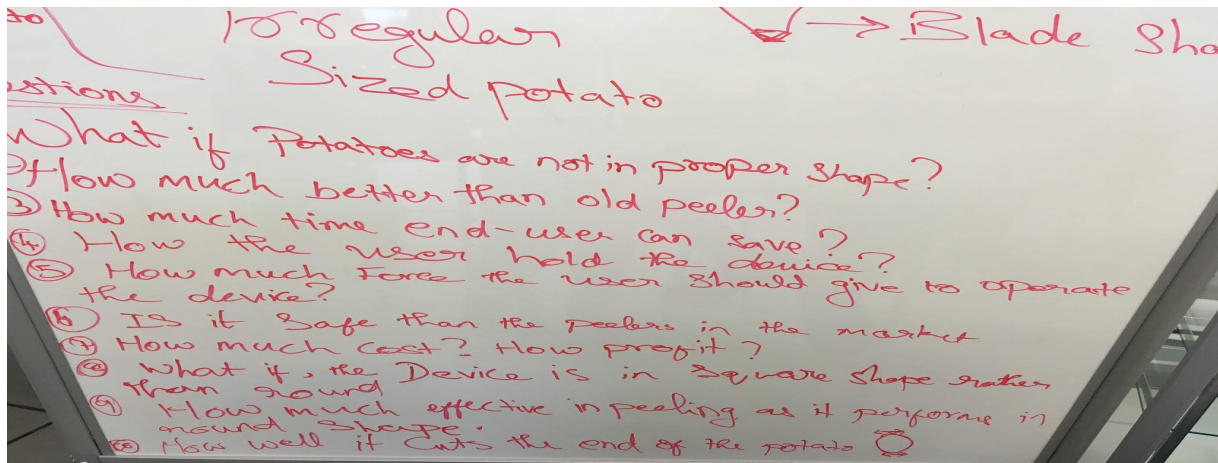 to
Irregular → Blade Sha
Sized potato
estions
What if Potatoes are not in proper shape?
How much better than old peeler?
③ How much time end-user can save?
④ How the user hold the device?
⑤ How much Force the user should give to operate
the device?
⑥ Is it Safe than the peelers in the market
⑦ How much cost? How profit?
⑧ What if, the Device is in Square shape rather
than round
⑨ How much effective in peeling as it performs in
round shape.
⑩ How well it Cuts the end of the potato